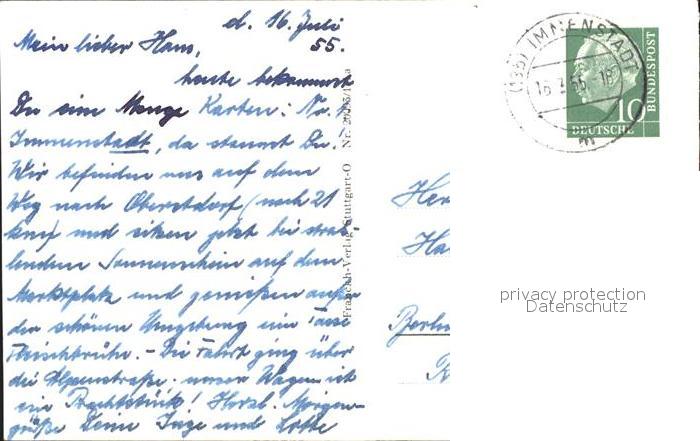 d. 16. Juli
55.
Mein lieber Hans,
heute bekommst
Du eine Menge Karten: No. 1
Immenstadt, da staunst Du.
Wir befinden uns auf dem
Weg nach Oberstdorf (noch 21
km) und sitzen jetzt bei strah-
lendem Sonnenschein auf dem
Marktplatz und genießen außer
der schönen Umgebung eine Tasse
Fleischbrühe. - Die Fahrt ging über
die Alpenstraße. unser Wagen ist
ein Prachtstück! Herzl. Morgen-
grüße Deine Inge und Lotte
Franckh-Verlag Stuttgart-O Nr.
(13b) IMMENSTADT
16. 7. 55. 18
DEUTSCHE
BUNDESPOST
10
Her
Ha
Berlin
privacy protection
Datenschutz